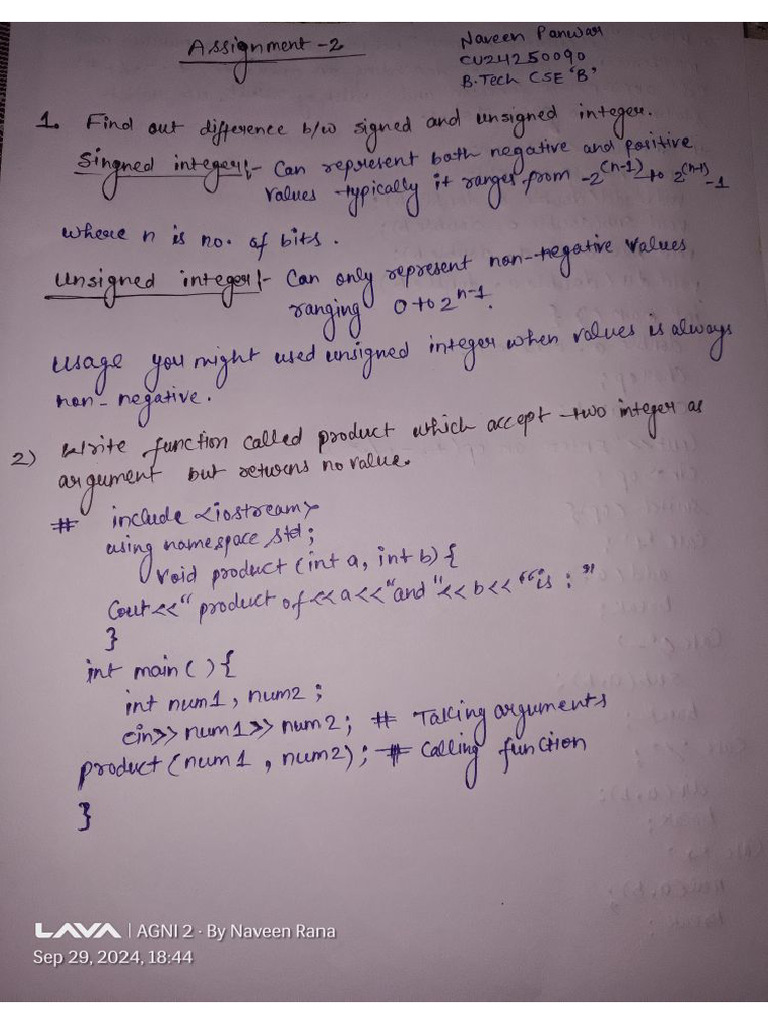 Assignment-2
Naveen Panwar
CU24250090
B.Tech CSE 'B'
1. Find out difference b/w signed and unsigned integer.
Singned integer:- Can represent both negative and positive
values typically it ranges from -2^(n-1) to 2^(n-1)-1
where n is no. of bits.
Unsigned integer:- Can only represent non-negative values
ranging 0 to 2^n-1.
usage you might used unsigned integer when values is always
non-negative.
2) Write function called product which accept two integer as
argument but returns no value.
# include <iostream>
using namespace std;
Void product (int a, int b) {
Cout<<"product of<<a<<"and"<<b<<"is:"
}
int main() {
int num1, num2;
cin>> num1>> num2; # Taking arguments
product (num1, num2); # Calling function
}
LAVA | AGNI 2 · By Naveen Rana
Sep 29, 2024, 18:44